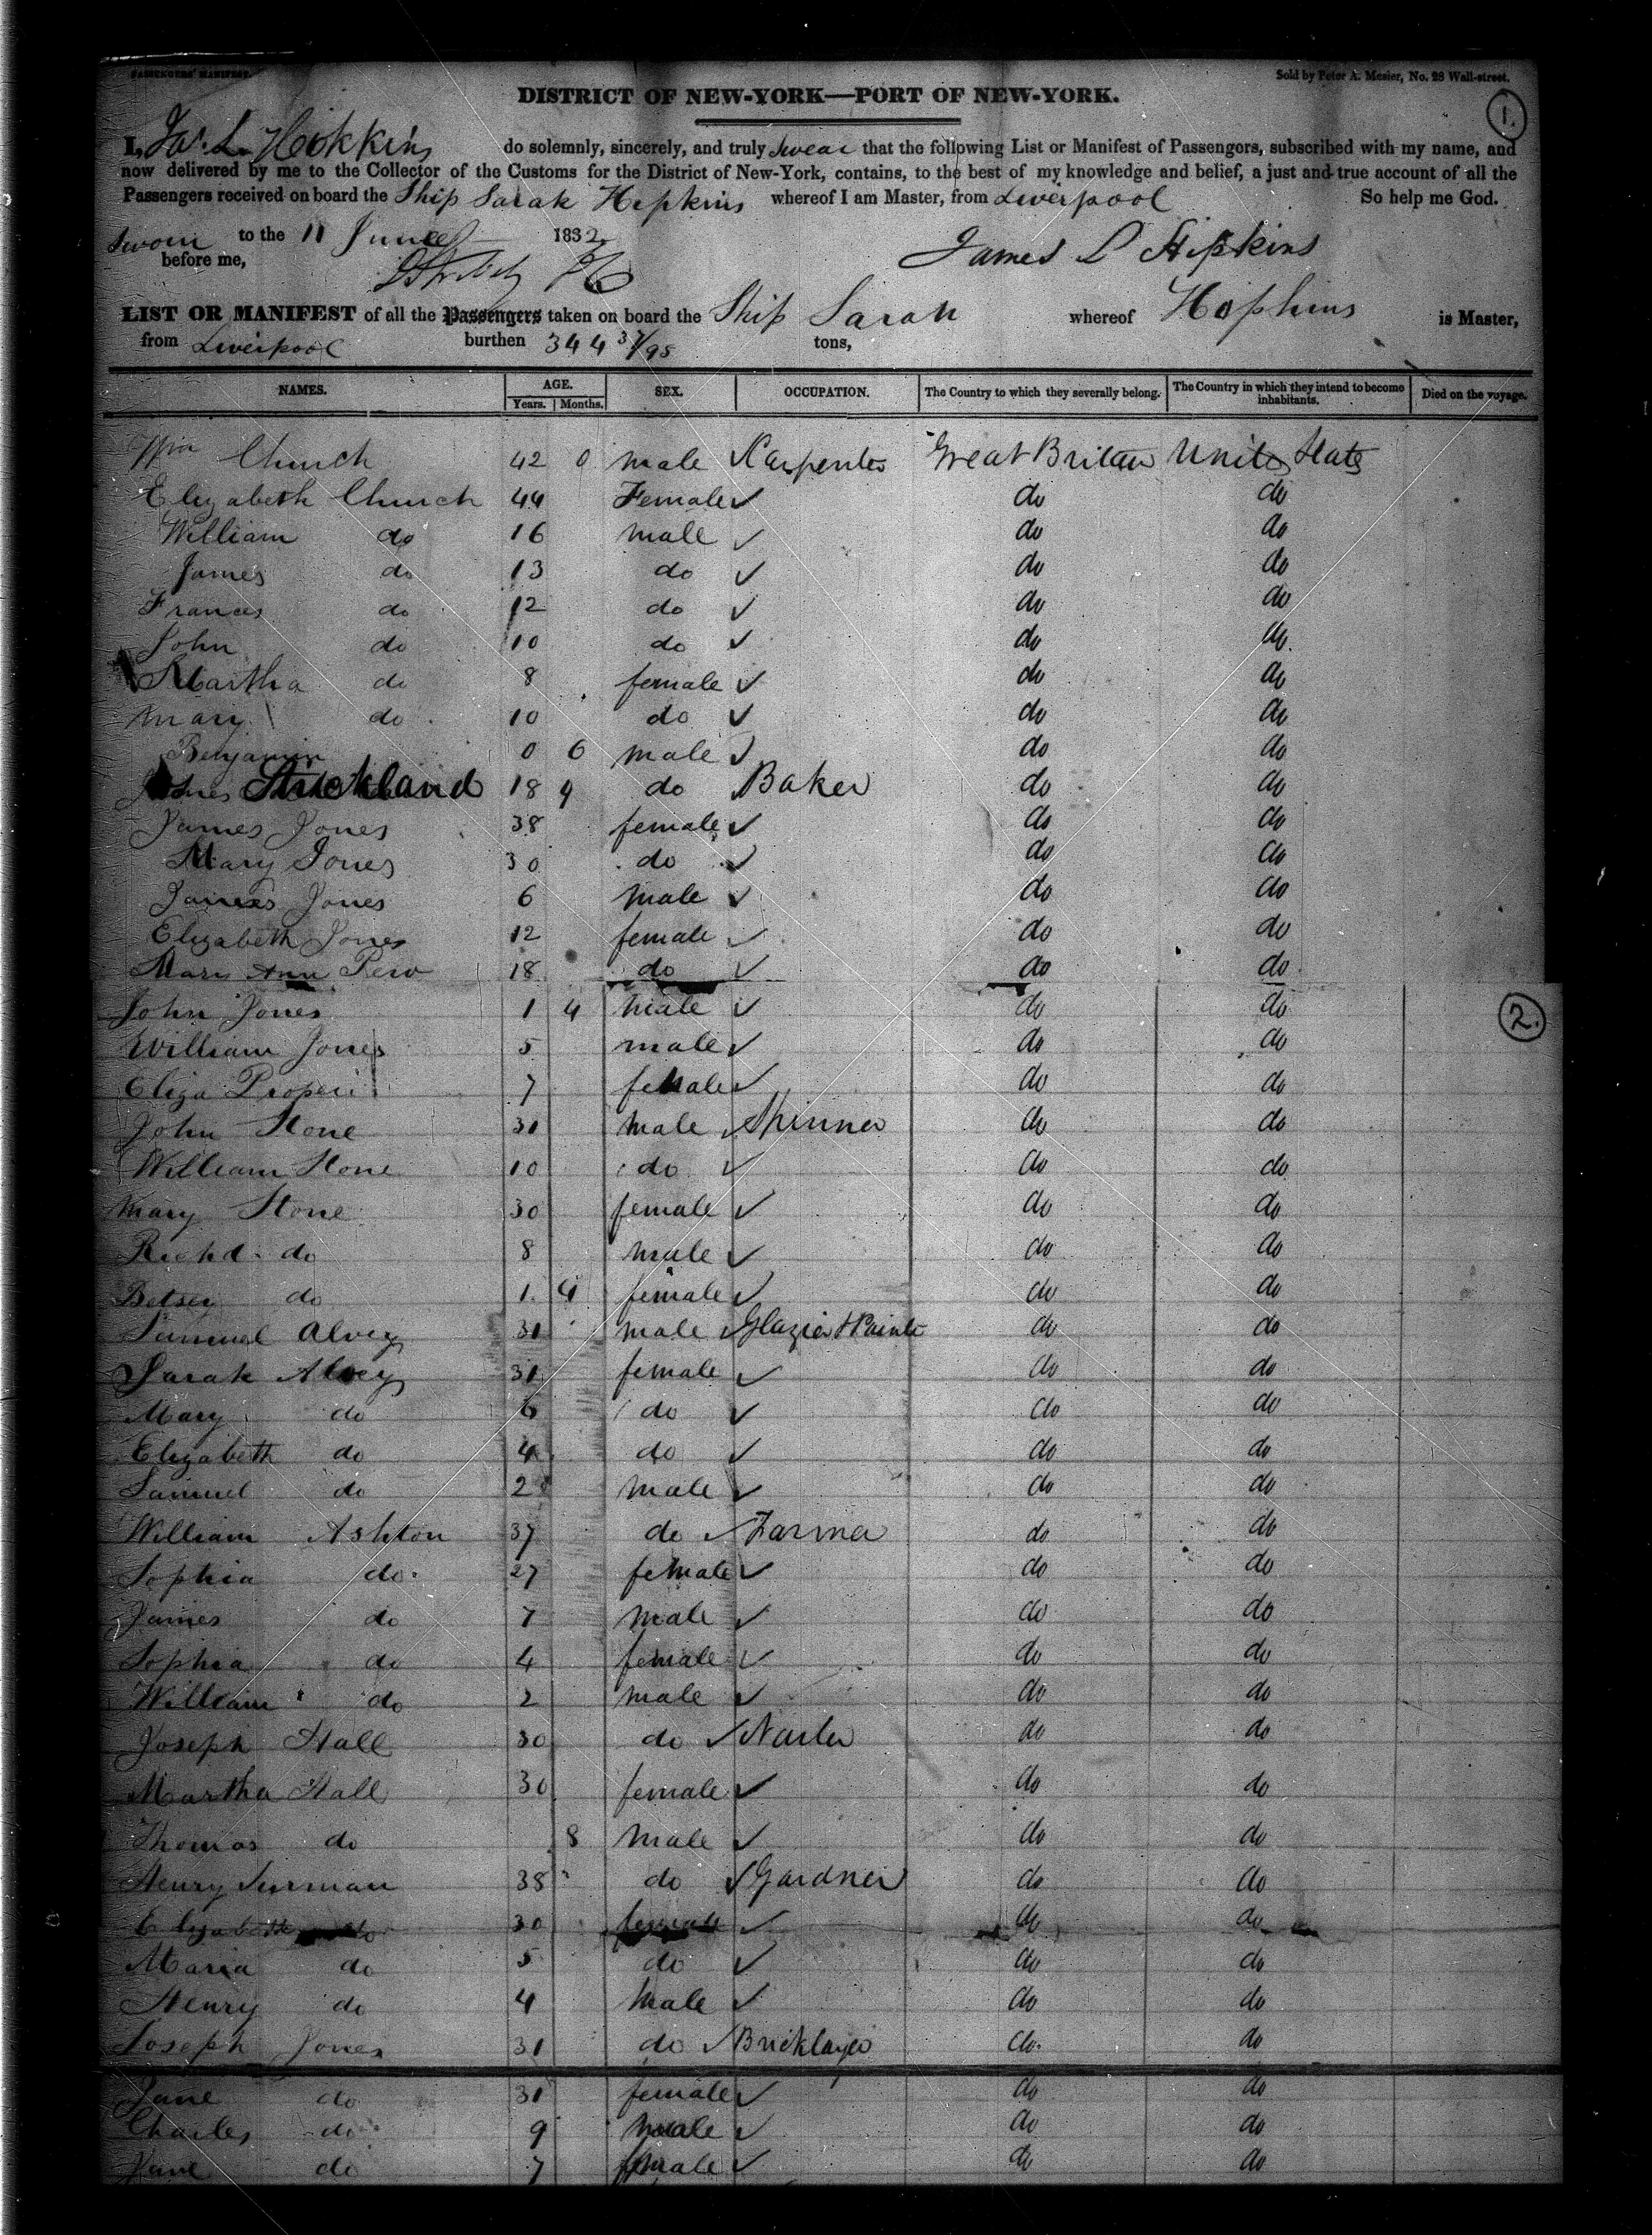 PASSENGERS' MANIFEST.
Sold by Peter A. Mesier, No. 28 Wall-street.
DISTRICT OF NEW-YORK—PORT OF NEW-YORK.
1.
I, Jas. L. Hopkins do solemnly, sincerely, and truly swear that the following List or Manifest of Passengers, subscribed with my name, and
now delivered by me to the Collector of the Customs for the District of New-York, contains, to the best of my knowledge and belief, a just and true account of all the
Passengers received on board the Ship Sarah Hopkins whereof I am Master, from Liverpool So help me God.
Sworn to the 11 June 1832
before me,
James L Hopkins
LIST OR MANIFEST of all the Passengers taken on board the Ship Sarah whereof Hopkins is Master,
from Liverpool burthen 344 37/95 tons,
NAMES. AGE. SEX. OCCUPATION. The Country to which they severally belong. The Country in which they intend to become inhabitants. Died on the voyage.
Years. Months.
Wm Church 42 0 male Carpenter Great Britain United States
Elizabeth Church 44 Female do do
William do 16 male do do
James do 13 do do do
Frances do 12 do do do
John do 10 do do do
Martha do 8 female do do
Mary do 10 do do do
Benjamin 0 6 male do do
Strickland 18 4 do Baker do do
James Jones 38 female do do
Mary Jones 30 do do do
James Jones 6 male do do
Elizabeth Jones 12 female do do
Mary Ann Pew 18 do do do
2.
John Jones 1 4 male do do
William Jones 5 male do do
Eliza 7 female do do
John Stone 31 male Spinner do do
William Stone 10 do do do
Mary Stone 30 female do do
Richd. do 8 male do do
Betsey do 1 4 female do do
Samuel Alvey 31 male Glazier & Painter do do
Sarah Alvey 31 female do do
Mary do 6 do do do
Elizabeth do 4 do do do
Samuel do 2 male do do
William Ashton 37 do Farmer do do
Sophia do 27 female do do
James do 7 male do do
Sophia do 4 female do do
William do 2 male do do
Joseph Hall 30 do Nailer do do
Martha Hall 30 female do do
Thomas do 8 male do do
Henry Surman 38 do Gardner do do
Elizabeth do 30 female do do
Maria do 5 do do do
Henry do 4 male do do
Joseph Jones 31 do Bricklayer do do
Jane do 31 female do do
Charles do 9 male do do
Jane do 7 female do do